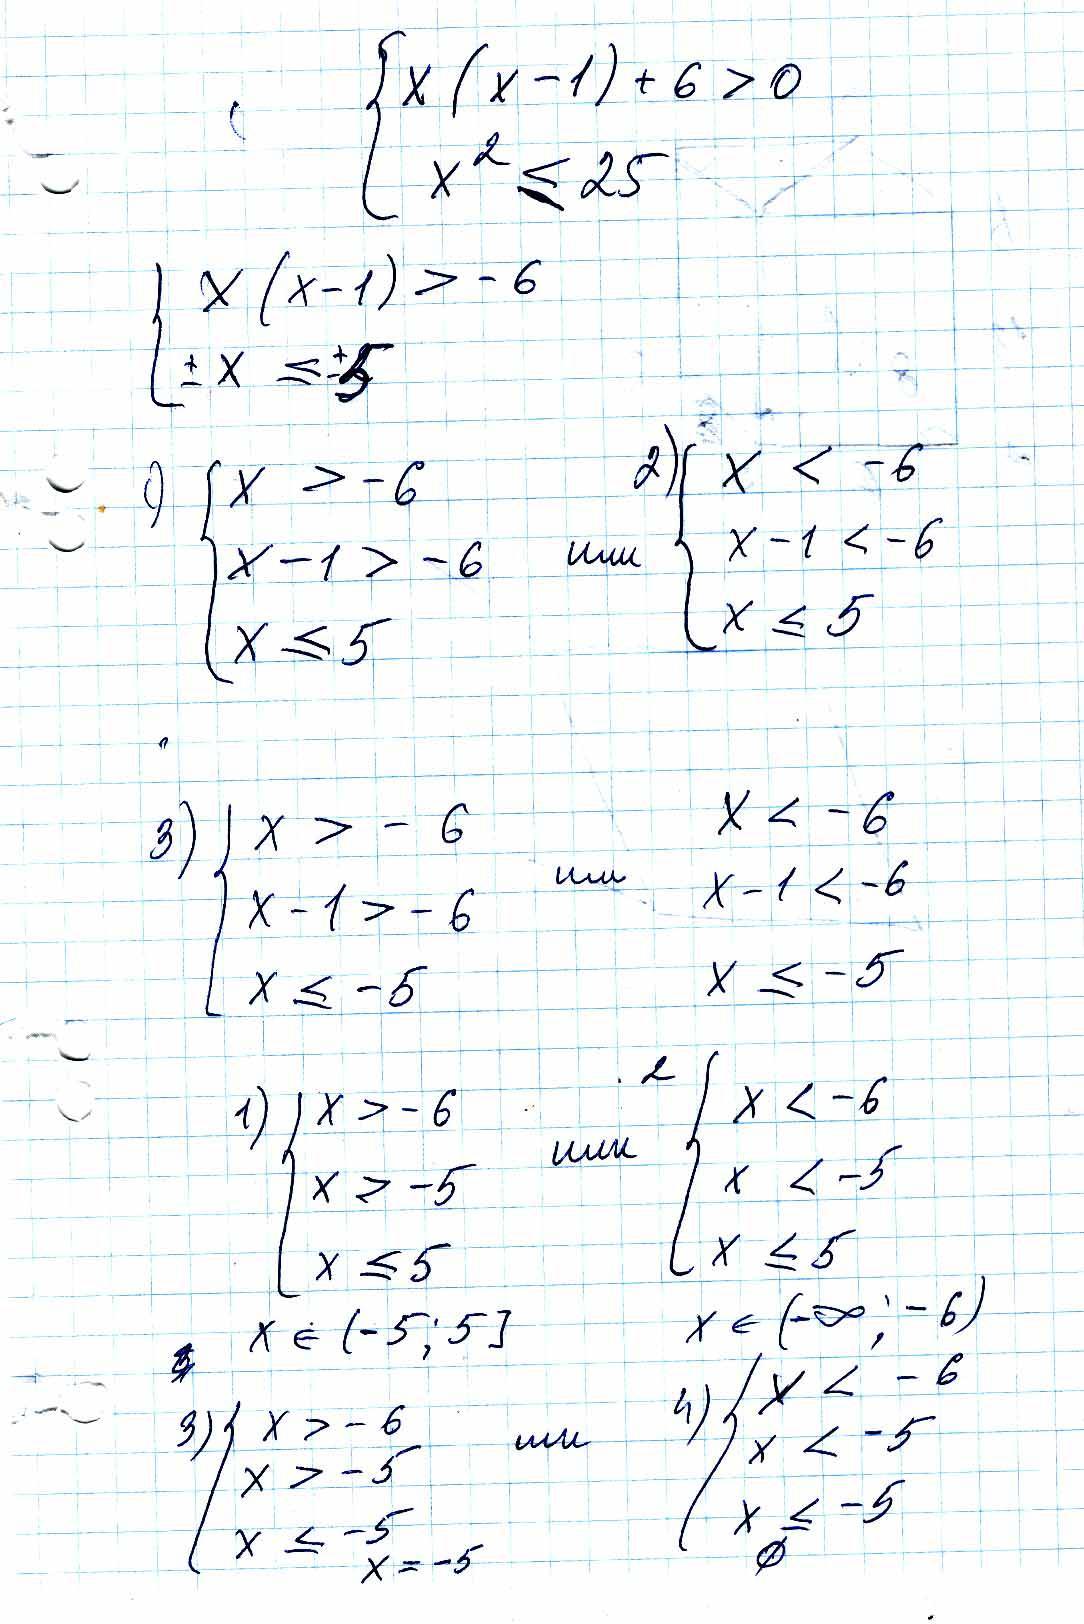 x(x-1)+6>0
x² ≤ 25
x(x-1)>-6
±x ≤ ±5
1) x > -6
x-1 > -6
x ≤ 5
или
2) x < -6
x-1 < -6
x ≤ 5
3) x > -6
x-1 > -6
x ≤ -5
или
x < -6
x-1 < -6
x ≤ -5
1) x > -6
x > -5
x ≤ 5
x ∈ (-5; 5]
или
2 x < -6
x < -5
x ≤ 5
x ∈ (-∞; -6)
3) x > -6
x > -5
x ≤ -5
x = -5
или
4) x < -6
x < -5
x ≤ -5
∅